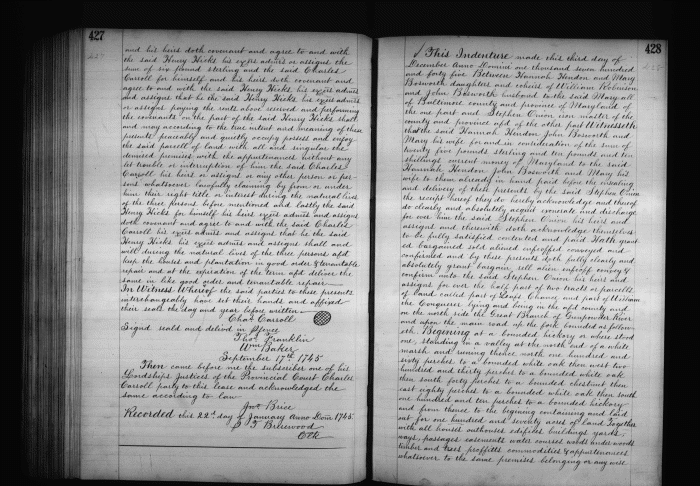 427
and his heirs doth covenant and agree to and with
the said Henry Hicks his exōrs admrs or assigns the
sum of six pound sterling and the said Charles
Carroll for himself and his heirs doth covenant and
agree to and with the said Henry Hicks his exōrs admrs
and assigns that he the said Henry Hicks his exōrs admrs
or assigns paying the rents above reserved and performing
the covenants on the part of the said Henry Hicks shall
and may according to the true intent and meaning of these
presents peaceably and quietly occupy possess and enjoy
the said parcell of land with all and singular the
demised premises with the appurtenances without any
let trouble or interruption of him the said Charles
Carroll his heirs or assigns or any other person or per-
sons whatsoever lawfully claiming by from or under
him their right title or interest during the natural lives
of the three persons before mentioned and lastly the said
Henry Hicks for himself his heirs exōrs admrs and assigns
doth covenant and agree to and with the said Charles
Carroll his exōrs admrs and assigns that he the said
Henry Hicks his exōrs admrs and assigns shall and
will during the natural lives of the three persons afd
keep the houses and plantation in good order & tenantable
repair and at the expiration of the term afd deliver the
same in like good order and tenantable repair
In Witness Whereof the said parties to these presents
interchangeably have set their hands and affixed
their seals the day and year before written
Chas Carroll
Signd seald and delivd in psence
Thos Franklin
Wm Baker
September 17th 1745
Then came before me the subscriber one of his
Lordships Justices of the Provincial Court Charles
Carroll party to this lease and acknowledged the
same according to law
Jno Brice
Recorded this 22d day of January Anno Dom 1745
Brerewood
Clk
428
This Indenture made this third day of
December Anno Domini one thousand seven hundred
and forty five Between Hannah Hendon and Mary
Bosworth daughters and coheirs of William Robinson
and John Bosworth husband to the said Mary all
of Baltimore county and province of Maryland of
the one part and Stephen Onion iron master of the
county and province afd of the other part Witnesseth
that the said Hannah Hendon John Bosworth and
Mary his wife for and in consideration of the sum of
twenty five pounds sterling and ten pounds and ten
shillings current money of Maryland to the said
Hannah Hendon John Bosworth and Mary his
wife to them already in hand paid before the ensealing
and delivery of these presents by the said Stephen Onion
the receipt thereof they do hereby acknowledge and thereof
do clearly and absolutely acquit exonerate and discharge
for ever him the said Stephen Onion his heirs and
assigns and therewith doth acknowledge themselves
to be fully satisfied contented and paid Hath grant
ed bargained sold aliened infeoffed conveyed and
confirmed and by these presents doth fully clearly and
absolutely grant bargain sell alien infeoff convey &
confirm unto the said Stephen Onion his heirs and
assigns for ever the half part of two tracts or parcells
of land called part of Longs Chance and part of William
the Conqueror lying and being in the afd county and
on the north side the Great Branch of Gunpowder River
and upon the main road up the fork bounded as follow-
eth Begining at a bounded hickory or whose stood
one, standing in a valley at the north end of a white
marsh and runing thence north one hundred and
sixty perches to a bounded white oak then west two
hundred and thirty perches to a bounded white oak
then south forty perches to a bounded chestnut then
east eighty perches to a bounded white oak then south
one hundred and ten perches to a bounded hickory
and from thence to the begining containing and laid
out for one hundred and seventy acres of land Together
with all houses outhouses edifices buildings yards
ways, passages easements water courses woods under woods
timber and trees proffitts commodities & appurtenances
whatsoever to the same premises belonging or any wise